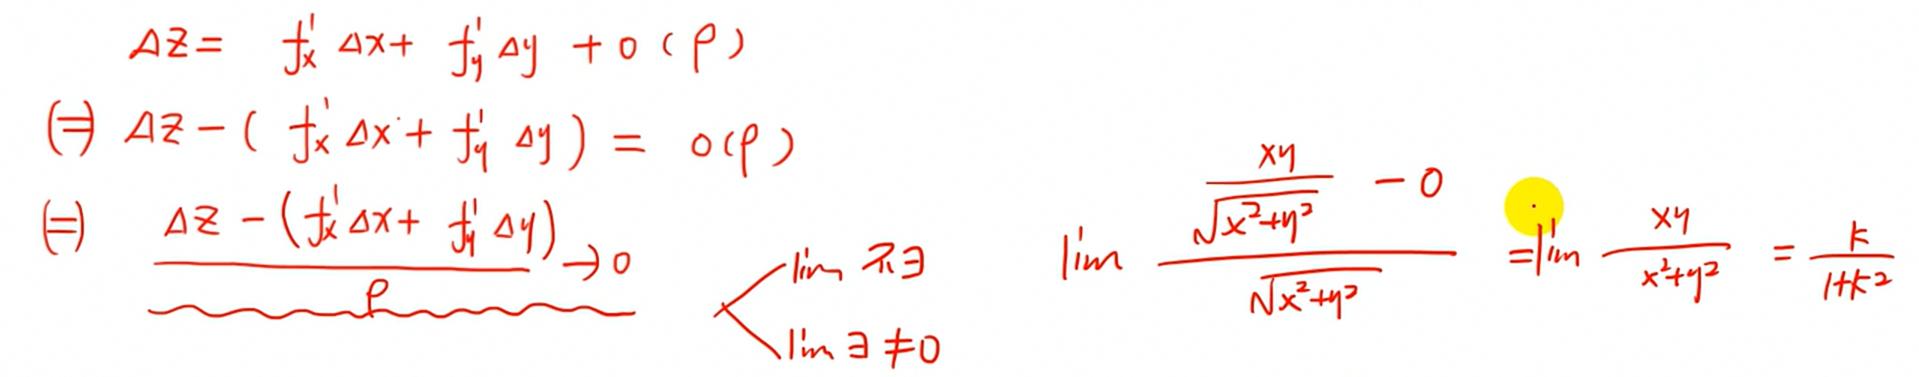 ΔZ = f'x Δx + f'y Δy + o(ρ)
(=) ΔZ - (f'x Δx + f'y Δy) = o(ρ)
(=) (ΔZ - (f'x Δx + f'y Δy)) / ρ → 0
lim 不∃
lim ∃ ≠ 0
lim (xy/√(x²+y²) - 0) / √(x²+y²) = lim xy/(x²+y²) = k/(1+k²)